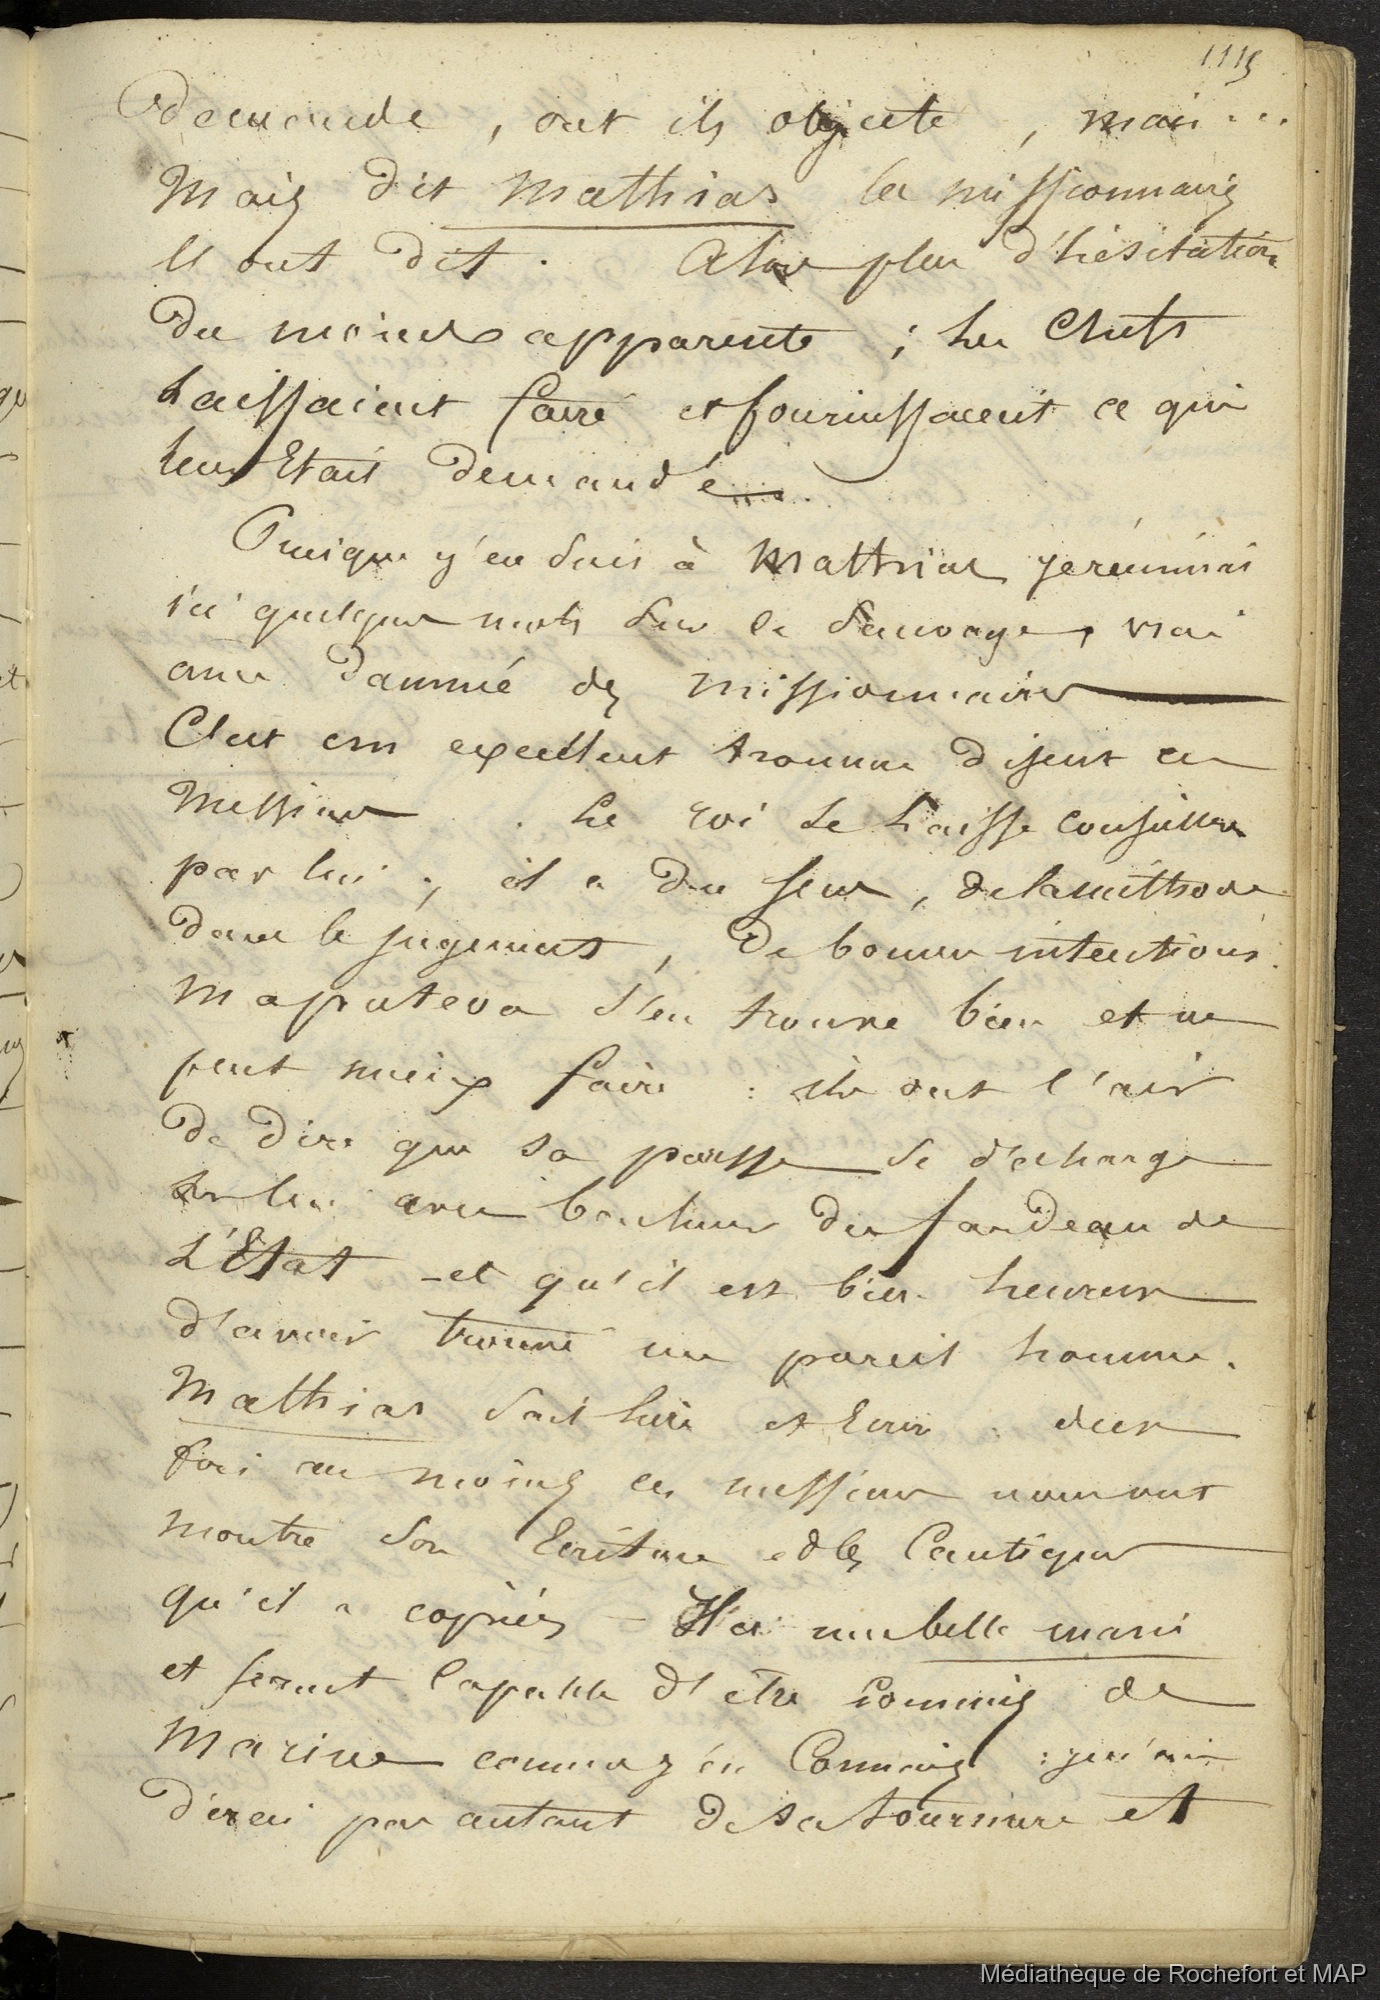 1115
Demande, ont ils objecté, mais...
Mais dit Mathias les missionnaires
l'ont dit. Alors plus d'hésitation
du moins apparente ; les Chefs
laissaient faire et fournissaient ce qui
leur Etait demandé.
Puisque j'en suis à Matthias je réunirai
ici quelques mots sur ce sauvage, vrai
ame damnée des missionnaires
C'est un excellent homme disent ces
Messieurs. Le roi se laisse conseiller
par lui ; il a du sens, de la méthode
dans le jugement, de bonnes intentions.
Maputeoa s'en trouve bien et ne
peut mieux faire : ils ont l'air
de dire que sa paresse se décharge
sur lui avec bonheur du fardeau de
L'Etat - et qu'il est bien heureux
d'avoir trouvé un pareil homme.
Mathias sait lire et Ecrire. deux
fois au moins ces messieurs nous ont
montré son Ecriture et des Cantiques
qu'il a copiés - Il a une belle main
et serait capable d'être commis de
Marine comme Commis : je n'en
dirai pas autant de sa tournure et
Médiathèque de Rochefort et MAP